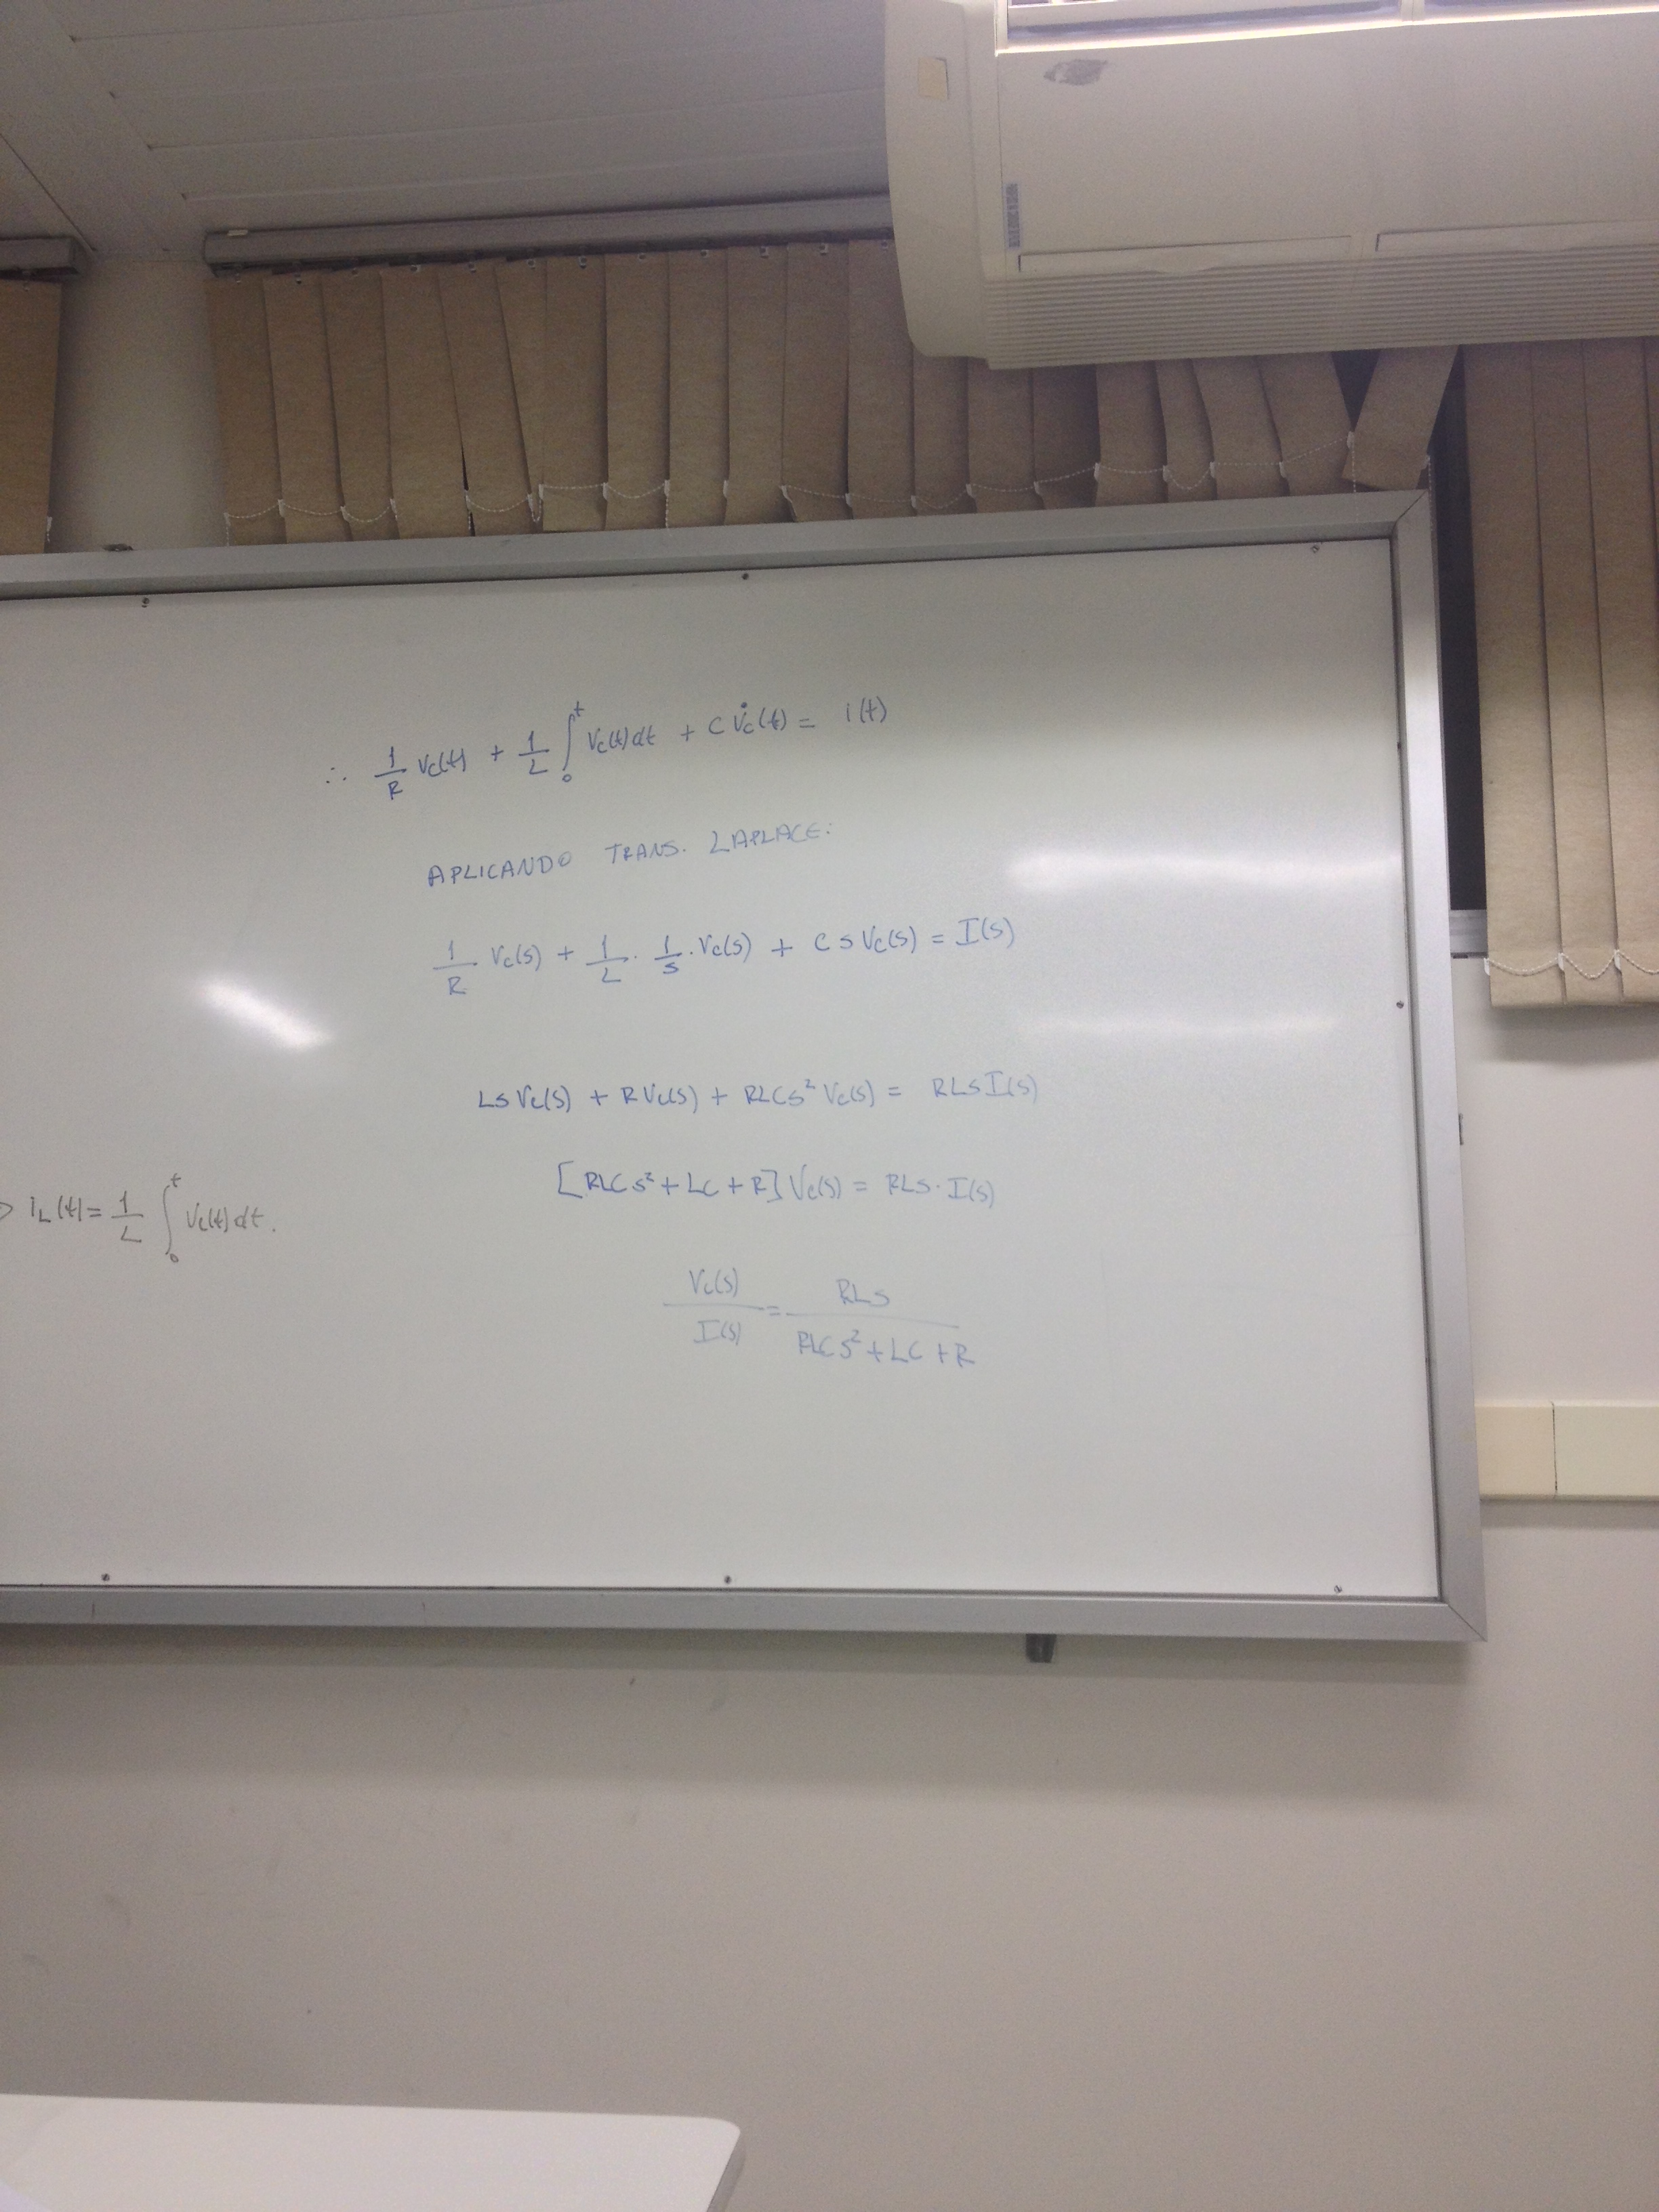 ∴ 1/R Vc(t) + 1/L ∫₀ᵗ Vc(t)dt + C V̇c(t) = i(t)
APLICANDO TRANS. LAPLACE:
1/R Vc(s) + 1/L · 1/s · Vc(s) + C s Vc(s) = I(s)
Ls Vc(s) + R Vc(s) + RLCs² Vc(s) = RLs I(s)
[RLCs² + LC + R] Vc(s) = RLs · I(s)
iL(t) = 1/L ∫₀ᵗ Vc(t) dt.
Vc(s)/I(s) = RLs/(RLCs² + LC + R)